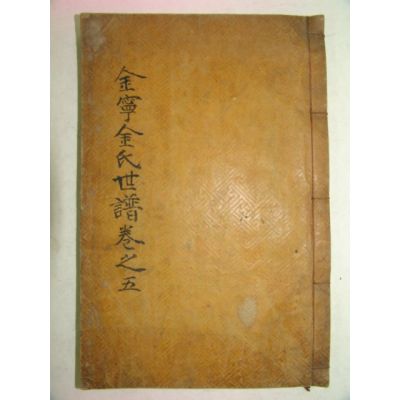 金寧金氏世譜卷之五